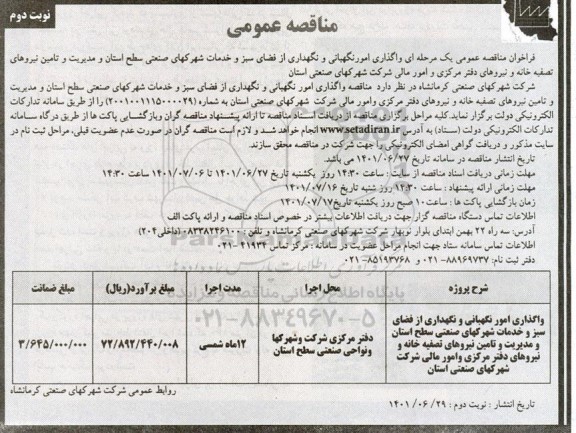 نوبت دوم
مناقصه عمومی
فراخوان مناقصه عمومی یک مرحله ای واگذاری امورنگهبانی و نگهداری از فضای سبز و خدمات شهرکهای صنعتی سطح استان و مدیریت و تامین نیروهای
تصفیه خانه و نیروهای دفتر مرکزی و امور مالی شرکت شهرکهای صنعتی استان
شرکت شهرکهای صنعتی کرمانشاه در نظر دارد مناقصه واگذاری امور نگهبانی و نگهداری از فضای سبز و خدمات شهرکهای صنعتی سطح استان و مدیریت
و تامین نیروهای تصفیه خانه و نیروهای دفتر مرکزی وامور مالی شرکت شهرکهای صنعتی استان به شماره (۲۰۰۱۰۰۱۱۱۵۰۰۰۰۲۹) را از طریق سامانه تدارکات
الکترونیکی دولت برگزار نماید.کلیه مراحل برگزاری مناقصه از دریافت اسناد مناقصه تا ارائه پیشنهاد مناقصه گران وبازگشایی پاکت ها از طریق درگاه سامانه
تدارکات الکترونیکی دولت (ستاد) به آدرس www.setadiran.ir انجام خواهد شد و لازم است مناقصه گران در صورت عدم عضویت قبلی، مراحل ثبت نام در
سایت مذکور و دریافت گواهی امضای الکترونیکی را جهت شرکت در مناقصه محقق سازند.
تاریخ انتشار مناقصه در سامانه تاریخ ۱۴۰۱/۰۶/۲۷ می باشد.
مهلت زمانی دریافت اسناد مناقصه از سایت : ساعت ۱۴:۳۰ روز یکشنبه تاریخ ۱۴۰۱/۰۶/۲۷ تا ۱۴۰۱/۰۷/۰۶ ساعت ۱۴:۳۰
مهلت زمانی ارائه پیشنهاد : ساعت ۱۴:۳۰ روز شنبه تاریخ ۱۴۰۱/۰۷/۱۶
زمان بازگشایی پاکت ها : ساعت ۱۰ صبح روز یکشنبه تاریخ۱۴۰۱/۰۷/۱۷
اطلاعات تماس دستگاه مناقصه گزار جهت دریافت اطلاعات بیشتر در خصوص اسناد مناقصه و ارائه پاکت الف
آدرس: سه راه ۲۲ بهمن ابتدای بلوار نوبهار شرکت شهرکهای صنعتی کرمانشاه و تلفن : ۰۸۳۳۸۲۴۶۱۰۰ (داخلی۲۰۴)
اطلاعات تماس سامانه ستاد جهت انجام مراحل عضویت در سامانه : مرکز تماس ۴۱۹۳۴-۰۲۱
دفتر ثبت نام: ۸۸۹۶۹۷۳۷-۰۲۱ و ۸۵۱۹۳۷۶۸-۰۲۱
شرح پروژه | محل اجرا | مدت اجرا | مبلغ برآورد(ریال) | مبلغ ضمانت
واگذاری امور نگهبانی و نگهداری از فضای
سبز و خدمات شهرکهای صنعتی سطح استان
و مدیریت و تامین نیروهای تصفیه خانه و
نیروهای دفتر مرکزی وامور مالی شرکت
شهرکهای صنعتی استان
دفتر مرکزی شرکت وشهرکها
ونواحی صنعتی سطح استان
۱۲ماه شمسی
۷۲/۸۹۲/۴۴۰/۰۰۸
۳/۶۴۵/۰۰۰/۰۰۰
روابط عمومی شرکت شهرکهای صنعتی کرمانشاه
تاریخ انتشار : نوبت دوم : ۲۹/ ۰۶/ ۱۴۰۱
پایگاه اطلاع رسانی مناقصه و مزایده
۰۲۱-۸۸۳۴۹۶۷۰-۵